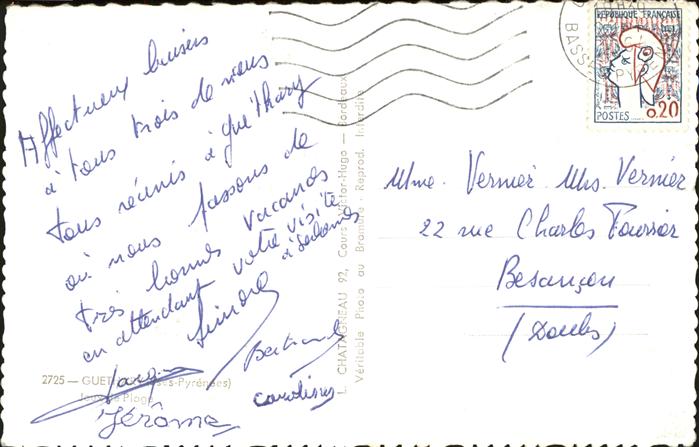 Affectueux baisers
à tous trois de nous
tous réunis à Guéthary
où nous passons de
très bonnes vacances
en attendant votre visite
à
Simone
Bertrand
Jérôme
2725 — GUET ses-Pyrénées)
Plage
L. CHATAGNEAU 92, Cours Victor-Hugo — Bordeaux
Véritable Photo au Bromure - Reprod. Interdite
BASS
RÉPUBLIQUE FRANÇAISE
0,20
POSTES
Mme. Vernier Mrs. Vernier
22 rue Charles Fourrier
Besançon
(Doubs)